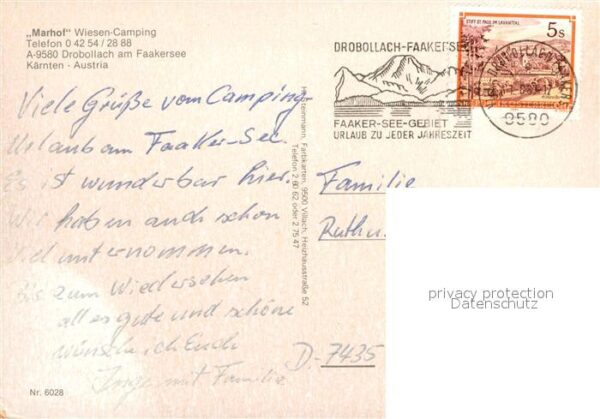 „Marhof“ Wiesen-Camping
Telefon 0 42 54 / 28 88
A-9580 Drobollach am Faakersee
Kärnten - Austria
Viele Grüße vom Camping-
Urlaub am Faaker-See.
Es ist wunderbar hier.
Wir haben auch schon
viel unternommen.
Bis zum Wiedersehen
alles gute und schöne
wünsch ich Euch
Inge mit Familie
Nr. 6028
Farbkarten, 9500 Villach, Heizhausstraße 52
Telefon 2 80 62 oder 2 75 47
DROBOLLACH-FAAKERSEE
FAAKER-SEE-GEBIET
URLAUB ZU JEDER JAHRESZEIT
STIFT ST. PAUL IM LAVANTTAL
5s
9580
Familie
Ruth
D-7435
privacy protection
Datenschutz